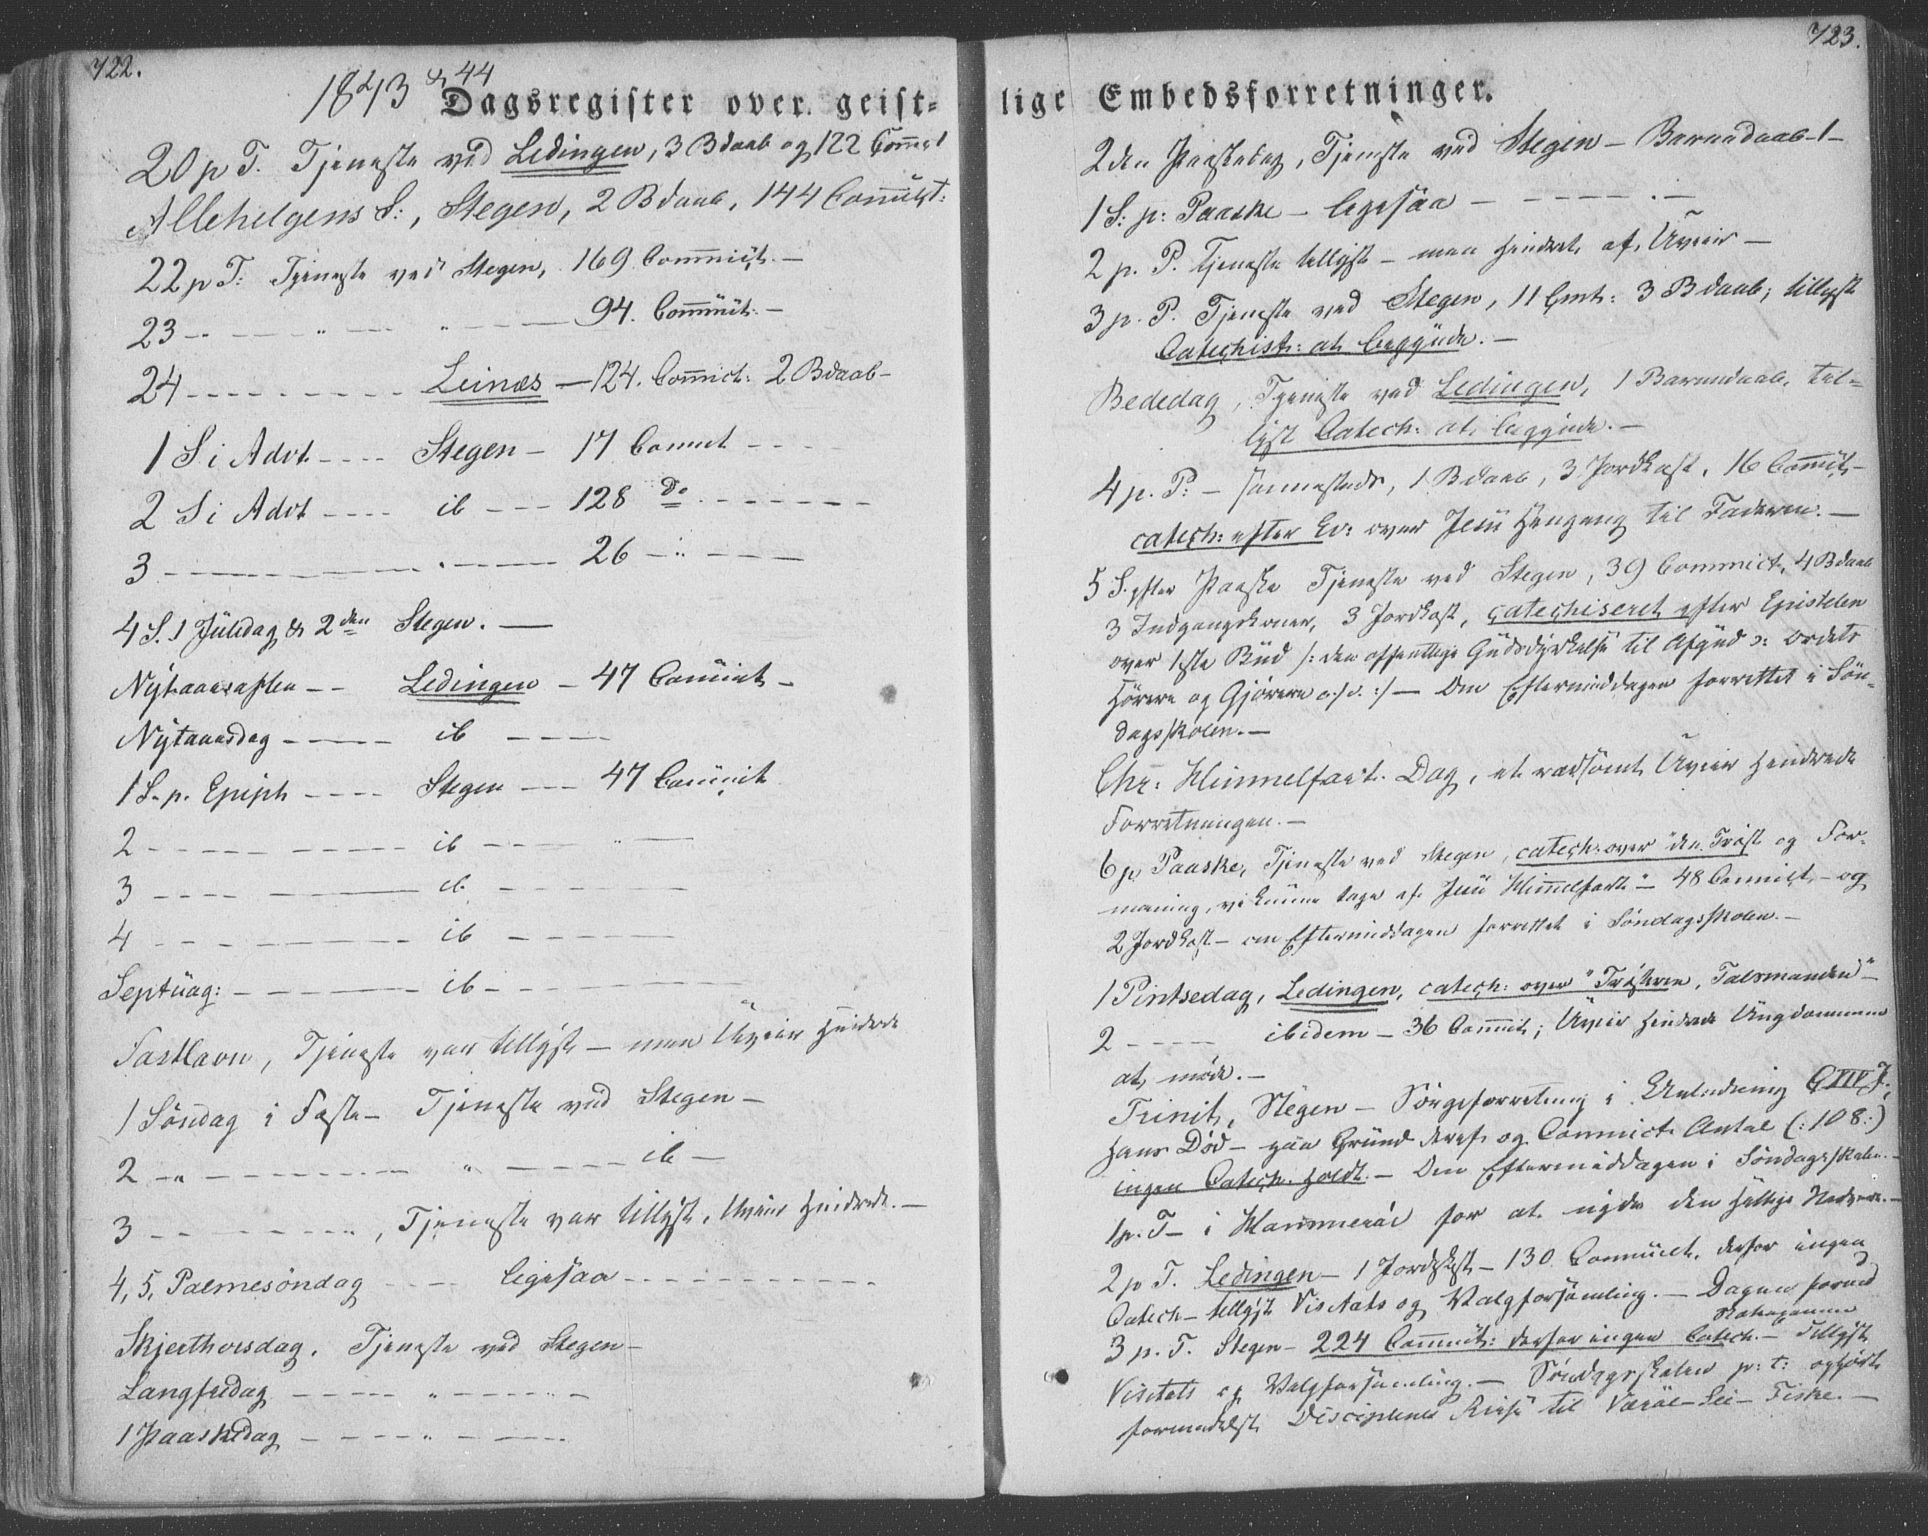 722.
1843 & 44
Dagsregister over geist-
20 p T. Tjeneste ved Ledingen, 3 Bdaab og 122 Comm:
Allehelgens S:, Stegen, 2 Bdaab, 144 Commict:
22 p T: Tjeneste ved Stegen, 169 Commict. —
23 — " — " — 94. Commict. —
24 - - - - - - - - Leines — 124. Commict: 2 Bdaab —
1 S i Advt. - - - - Stegen — 17 Commt - - -
2 S i Advt - - - - ib - - - 128 do - - - - - -
3 — — — " — — 26 — " — —
4 S. 1 Juledag & 2den Stegen. —
Nytaarsaften — - Ledingen — 47 Commict —
Nytaarsdag - - - - ib - - - -
1 S. p. Epiph - - - - Stegen - - - 47 Commict
2 - - - - - - - - ib - - - " —
3 - - - - — — ib - - - - -
4 - - - - - - - - ib - - - - -
Septuag: - - - - - - ib - - - - -
Fastlavn, Tjeneste var tillyst — men Uveir hindrede
1 Söndag i Faste — Tjeneste ved Stegen —
2 - " - - - - - - " - - - - ib —
3 - - - - - - - " , Tjeneste var tillyst, Uveir hindrede. —
4, 5, Palmesöndag - - - - ligesaa - - - - - - - -
Skjerthorsdag. Tjeneste ved Stegen —
Langfredag - - - - " - - - -
1 Paaskedag - - - - " - - - -
723.
lige Embedsforretninger.
2den Paaskedag, Tjeneste ved Stegen — Barnedaab — 1 —
1 S: p: Paaske — ligesaa — - - - - . —
2 p. P. Tjeneste tillyst — men hindret af Uveir —
3 p. P. Tjeneste ved Stegen, 11 Cmt: 3 Bdaab; tillyst
Catechist: at begynde. —
Bededag, Tjeneste ved Ledingen, 1 Barnedaab, til-
lyst Catech: at begynde. —
4 p. P: — sammesteds, 1 Bdaab, 3 Jordkast, 16 Commict, —
catech: efter Ev: over Jesu Hengang til Faderen. —
5 S. efter Paaske Tjeneste ved Stegen, 39 Commict, 4 Bdaab
3 Indgangskoner, 3 Jordkast, catechiseret efter Epistelen
over 1ste Bud /: den offentlige Gudsdyrkelse til Afgud o: Ordets
Hörere og Gjörere o: s. v. :/ — Om Eftermiddagen forrettet i Sön-
dagsskolen. —
Chr: Himmelfart. Dag, et rædsomt Uveir hindrede
Forretningen. —
6 p. Paaske, Tjeneste ved Stegen, catech: over "den Tröst og For-
maning, vi kunne tage af Jesu Himmelfart" — 48 Commict. — og
2 Jordkast — om Eftermiddagen forrettet i Söndagsskolen. —
1 Pintsedag, Ledingen, catech: over "Trösteren, Talsmanden" —
2 - - - - ibidem — 36 Commict; Uveir hindrede Ungdommen
at møde. —
Trinit, Stegen — Sörgeforretning i Anledning CXIV J.
Hans Död — paa Grund deraf og Commict. Antal (: 108 :)
ingen Catech. holdt. — Om Eftermiddagen i Söndagsskolen. —
1 p. T — i Hammeröe for at nyde den hellige Nadvere. —
2 p T. Ledingen — 1 Jordkast — 130 Commict. derfor ingen
Catech — tillyst Visitats og Valgforsamling. — Dagen forud
3 p. T. Stegen — 224 Commict: derfor ingen Catech. — Tillyst
Visitats og Valgforsamling. — Söndagsskolen p: t: ophört
formedelst Disciplenes Reise til Væröe-Sei-Fiske. —